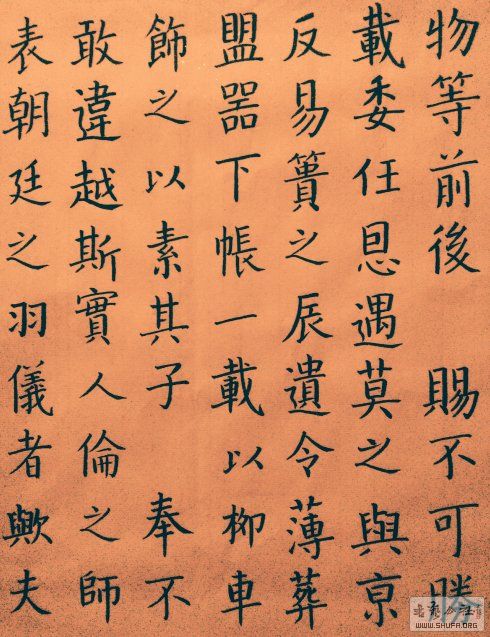 物等前後 賜不可勝
載委任恩遇莫之與亰
反易簀之辰遺令薄葬
盟器下帳一載以柳車
飾之以素其子 奉不
敢違越斯實人倫之師
表朝廷之羽儀者歟夫
WWW.SHUFA.ORG